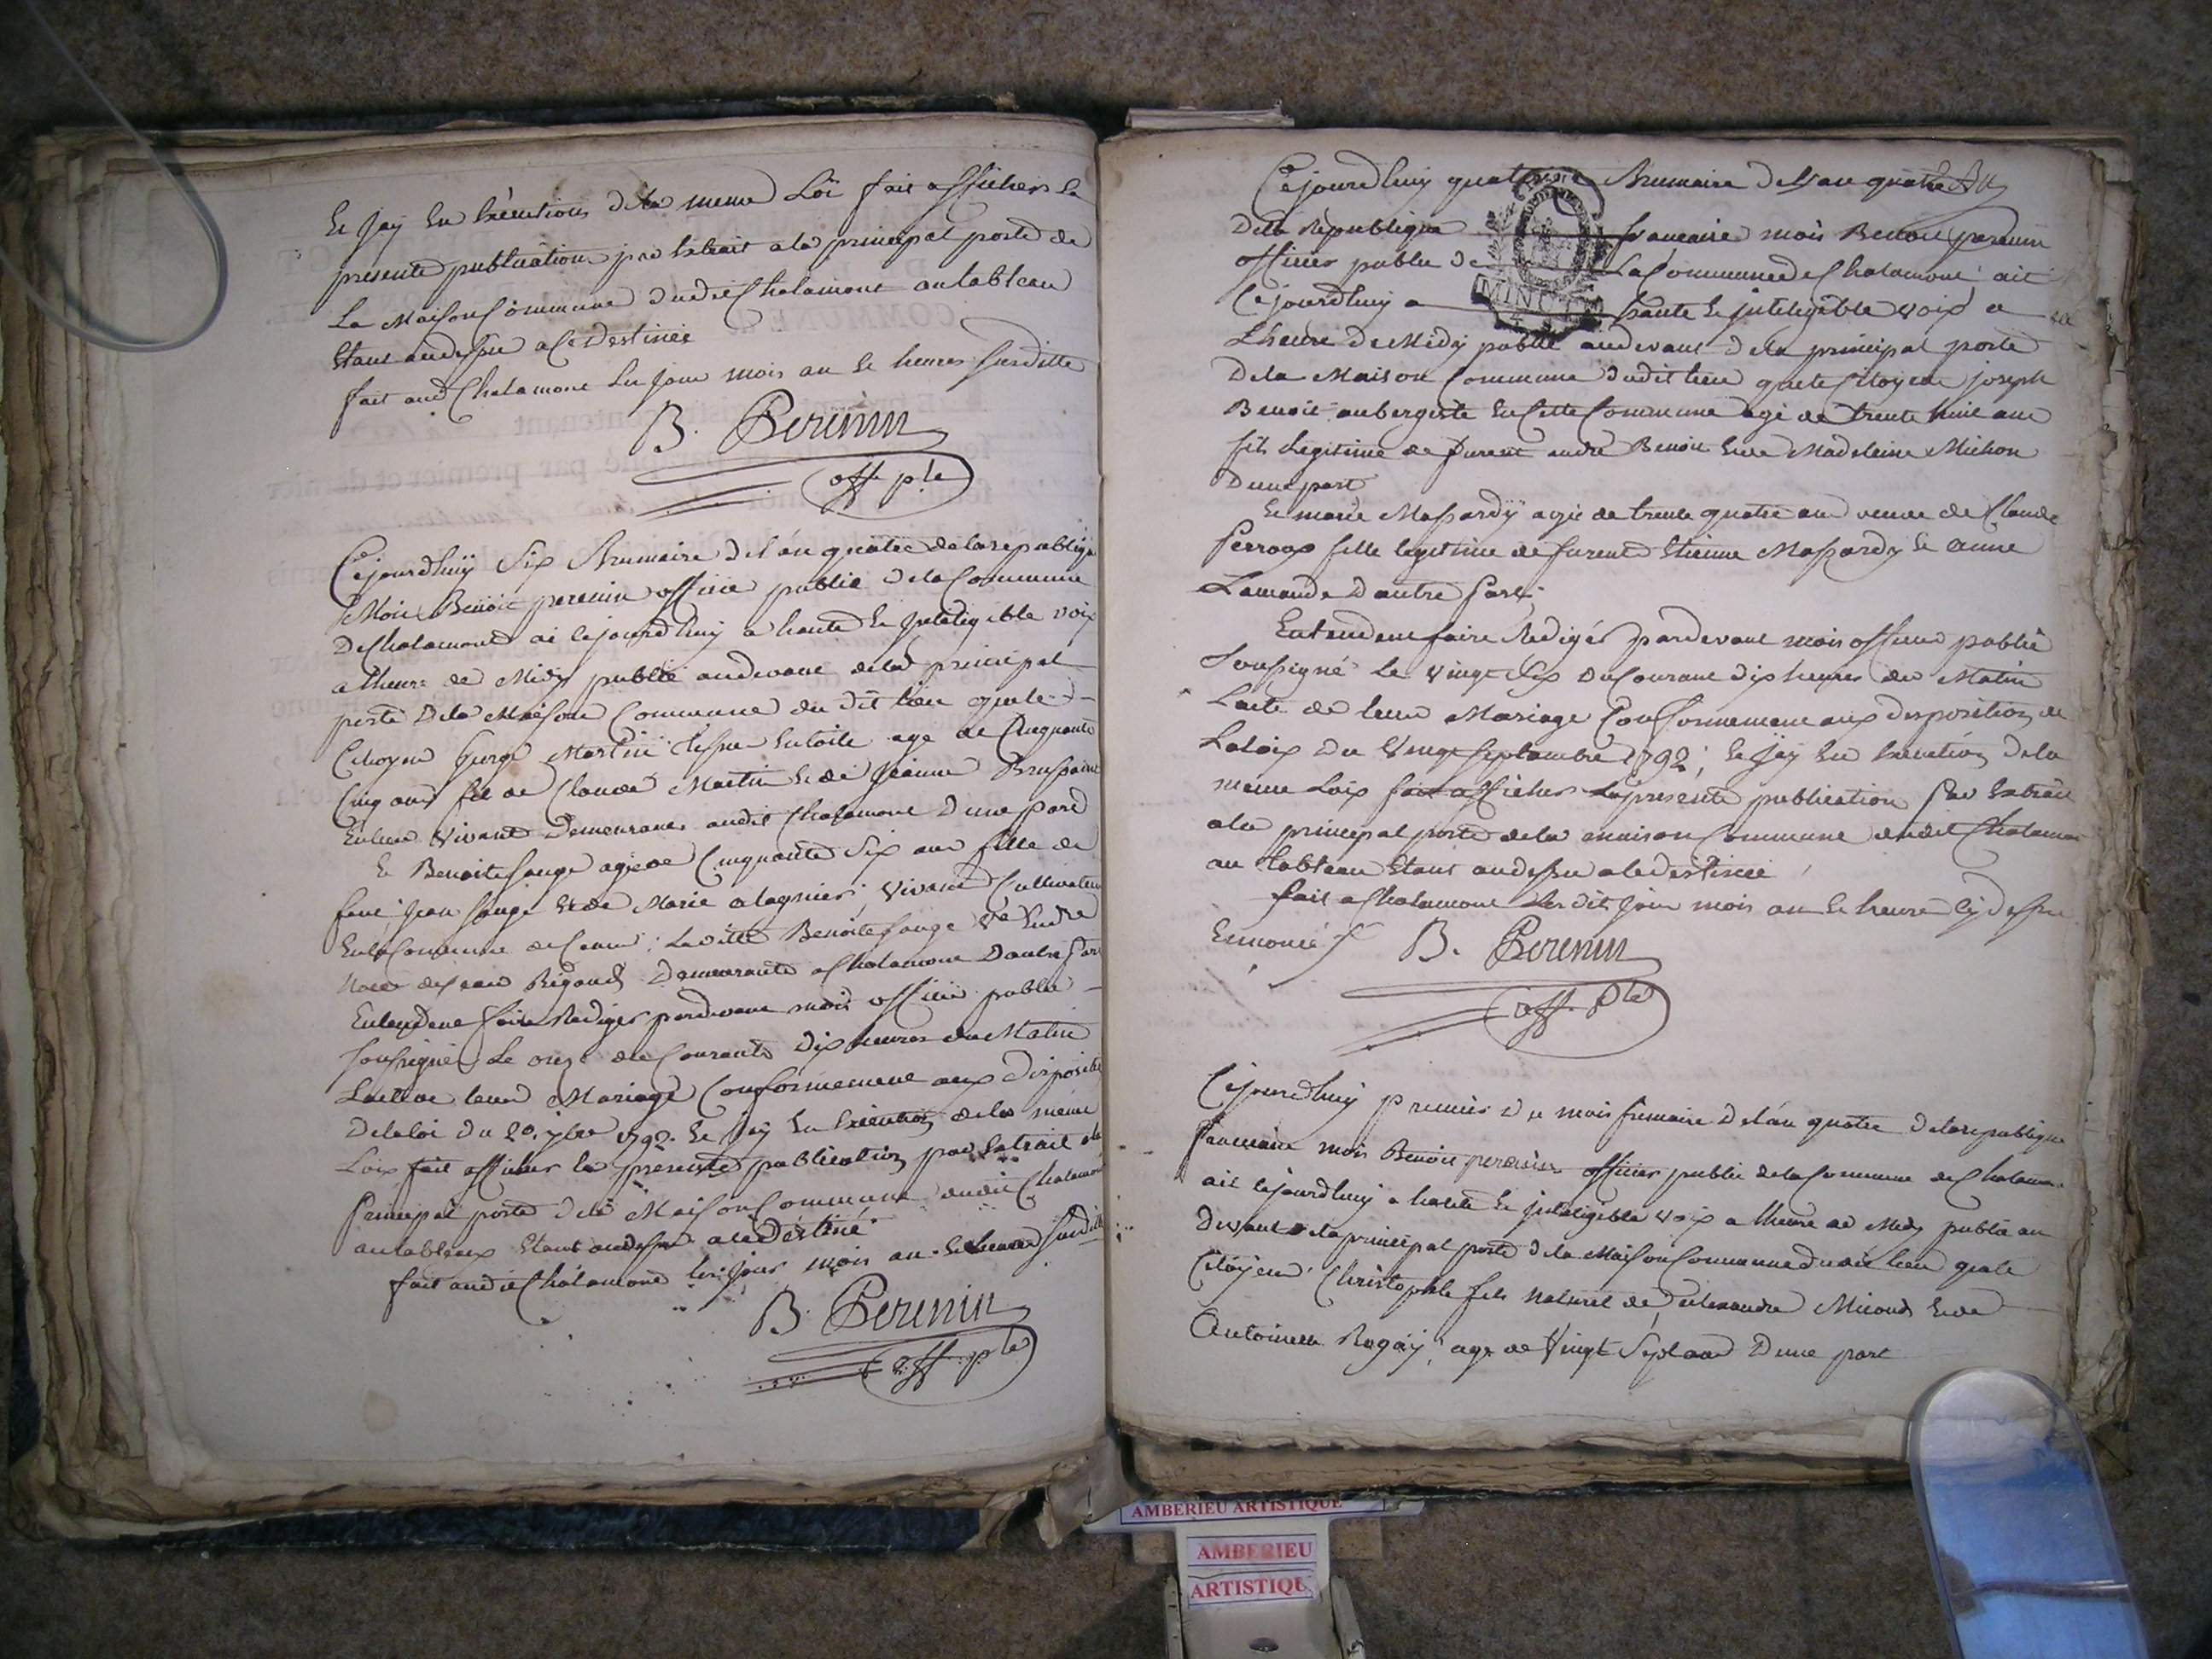 Et j'ay En Exécution de la meme Loi fait afficher la
presente publication par Extrait a la principal porte de
La Maison Commune dudit Chalamont au tableau
Etant au dessu a ce Destiné
fait aud Chalamont Les Jour mois an Et heures susditte
B. Perenin
off. p.le
Cejourdhuy Six Brumaire de l'an quatre de la republique
Moi Benoit perenin officier public de la Commune
De Chalamont ai Cejourd'huy a haute Et Inteligible voix
a l'heure de Midy publié au devant de la principal
porte De la Maison Commune du dit lieu que le
Citoyen George Martin age de Cinquante
Cinq ans fil de Claude Martin Et de Jeanne
Vivant Demeurant audit Chalamont D'une part
Et Benoite Sange agée de Cinquante Six ans fille de
feue Jean Sange Et de Marie vivant Cultivateur
En la Commune de Laditte Benoite Sange Ve
Rigaud Demeurante a Chalamont D'autre part
Entendent faire Rediger pardevant mois officier public
Soussigné Le onze du Courant Dix heures du Matin
L'acte de leur Mariage Conformement aux Disposition
De la loi du 20. 7bre 1792. Et J'ay En Exécution de la même
Loix fait afficher la presente publication par Extrait a la
Principal porte de la Maison Commune dudit Chalamont
au tableaux Etant au dessu a ce Destiné
fait audit Chalamont les jour mois an Et heure susditte
B. Perenin
off. p.le
Cejourdhuy Brumaire de l'an quatre
De la Republique francaise mois Benoit perenin
officier public de La Commune de Chalamont ait
Cejourdhuy a haute Et Inteligible voix a
MINUTE
L'heure de Midy publié audevant de la principal porte
De la Maison Commune dudit lieu que le Citoyen Joseph
Benoit aubergiste En Cette Commune agé de trente huit ans
fils Légitime de furent andré Benoit Et de Madeleine Michon
D'une part
Et marie Massardÿ agée de trente quatre ans veuve de Claude
Perroox fille legitime de furent Etienne Massardÿ Et anne
Lamande D'autre part.
Entendent faire Rédiger pardevant mois officier public
Soussigné le Vingt Six du Courant dix heures du Matin
L'acte de leur Mariage Conformement aux disposition de
La loix du Vingt Septembre 1792, Et J'ay En Exécution de la
même Loix fait afficher la presente publication par Extrait
a la principal porte de la maison Commune dudit Chalamont
au tableau Etant au dessu a ce destiné
fait a Chalamont Les dit Jour mois an Et heure cy dessu
Enoncé
B. Perenin
off. p.le
Cejourdhuy premier du mois frimaire de l'an quatre de la republique
francaise mois Benoit perenin officier public de la Commune de Chalamont
ait Cejourdhuy a haute Et Inteligible Voix a l'heure de Midy publié au
Devant de la principal porte de la Maison Commune dudit lieu que le
Citoyen Christophle fils naturel de alexandre Micoud Et de
Antoinette Rogay, age de Vingt Sept ans D'une part
AMBERIEU ARTISTIQUE
AMBERIEU
ARTISTIQU